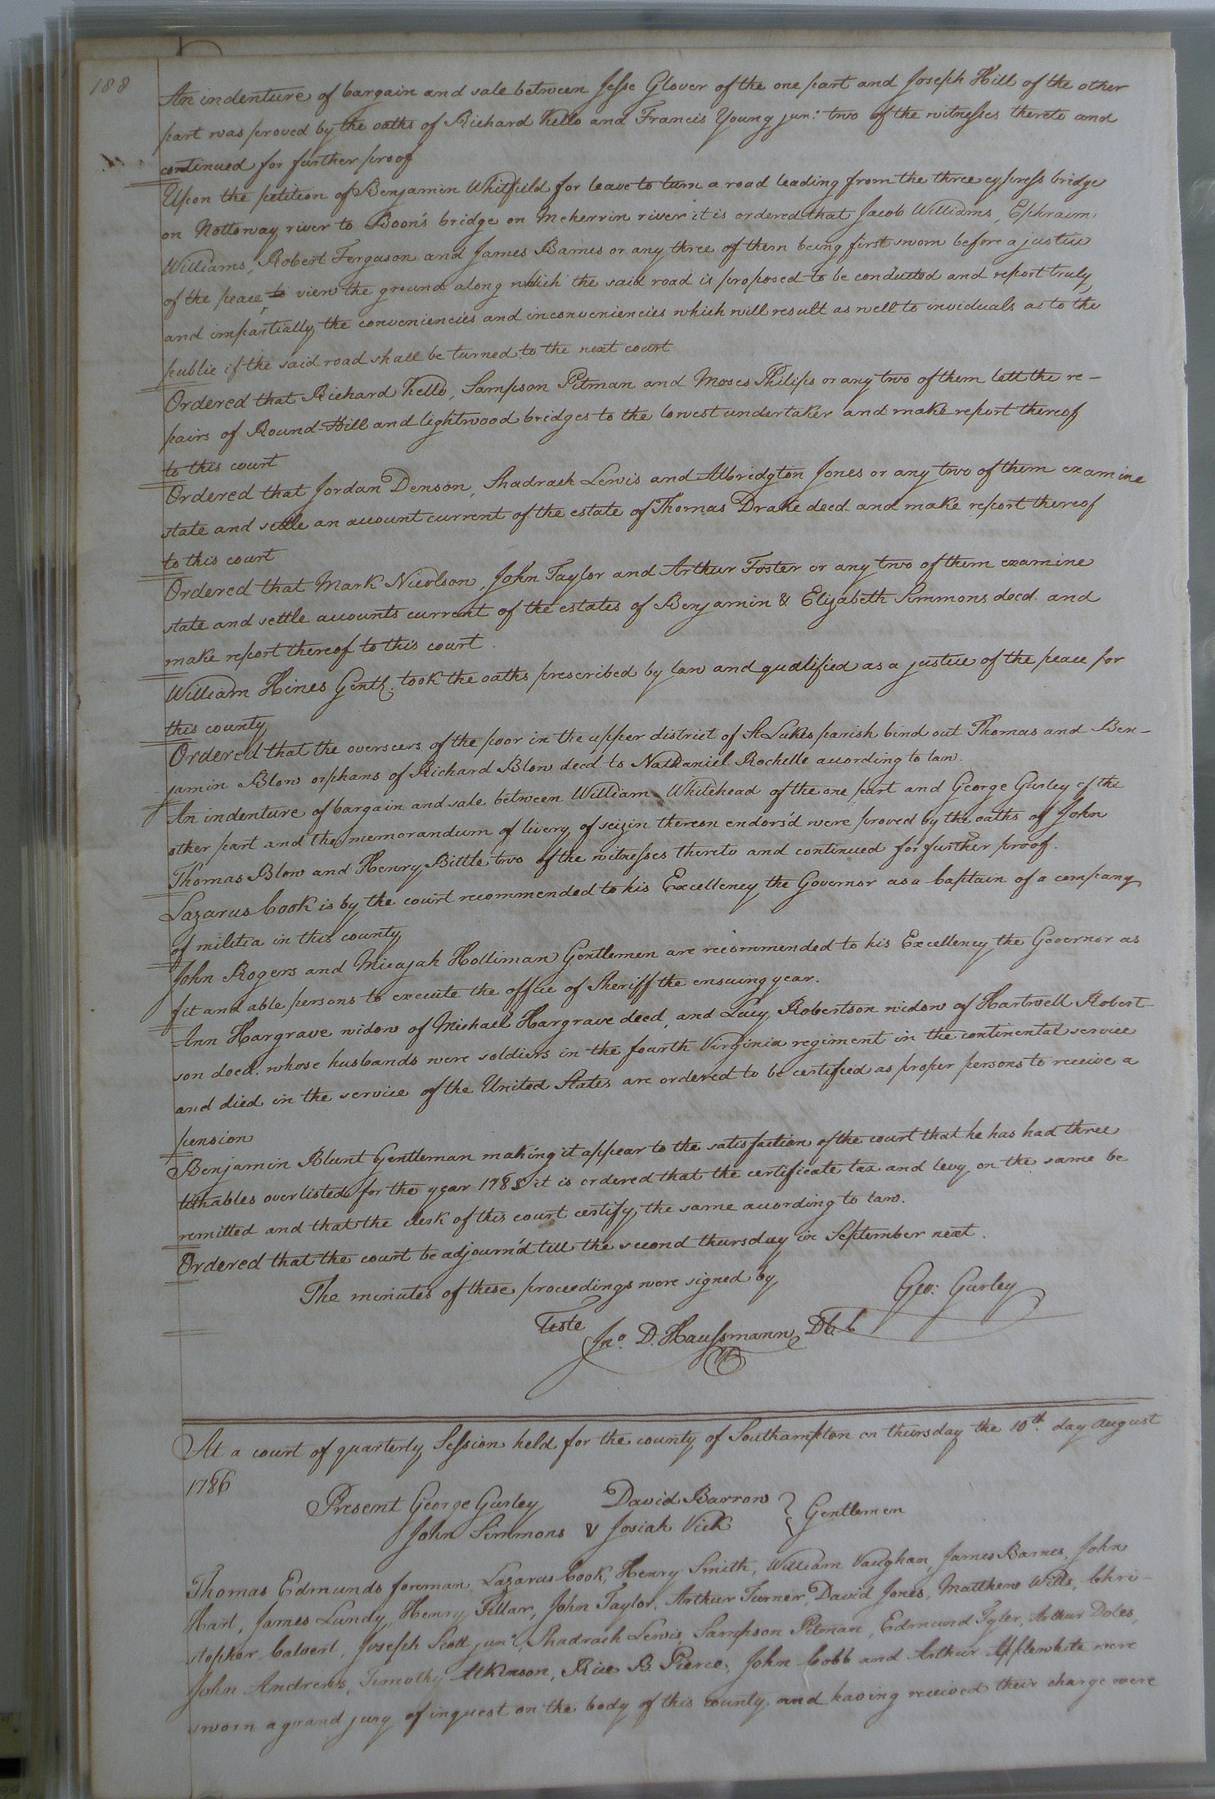 188
An indenture of bargain and sale between Jesse Glover of the one part and Joseph Hill of the other
part was proved by the oaths of Richard Kello and Francis Young junr. two of the witnesses thereto and
continued for further proof
Upon the petition of Benjamin Whitfield for leave to turn a road leading from the three cypress bridge
on Nottoway river to Boon's bridge on Meherrin river it is ordered that Jacob Williams, Ephraim
Williams, Robert Ferguson and James Barnes or any three of them being first sworn before a justice
of the peace to view the ground along which the said road is proposed to be conducted and report truly
and impartially the conveniencies and inconveniencies which will result as well to inviduals as to the
public if the said road shall be turned to the next court
Ordered that Richard Kello, Sampson Pitman and Moses Philips or any two of them lett the re-
pairs of Round-Hill and lightwood bridges to the lowest undertaker and make report thereof
to this court
Ordered that Jordan Denson, Shadrach Lewis and Albridgton Jones or any two of them examine
state and settle an account current of the estate of Thomas Drake decd. and make report thereof
to this court
Ordered that Mark Nicolson, John Taylor and Arthur Foster or any two of them examine
state and settle accounts current of the estates of Benjamin & Elizabeth Simmons decd. and
make report thereof to this court.
William Hines Gentl. took the oaths prescribed by law and qualified as a justice of the peace for
this county
Ordered that the overseers of the poor in the upper district of St Lukes parish bind out Thomas and Ben-
jamin Blow orphans of Richard Blow decd to Nathaniel Rochelle according to law.
An indenture of bargain and sale between William Whitehead of the one part and George Gurley of the
other part and the memorandum of livery of seizin thereon endors'd were proved by the oaths of John
Thomas Blow and Henry Bittle two of the witnesses thereto and continued for further proof.
Lazarus Cook is by the court recommended to his Excellency the Governor as a Captain of a company
of militia in this county
John Rogers and Micajah Holliman Gentlemen are recommended to his Excellency the Governor as
fit and able persons to execute the office of Sheriff the ensuing year.
Ann Hargrave widow of Michael Hargrave decd, and Lucy Robertson widow of Hartwell Robert-
son decd. whose husbands were soldiers in the fourth Virginia regiment in the continental service
and died in the service of the United States are ordered to be certified as proper persons to receive a
pension
Benjamin Blunt Gentleman making it appear to the satisfaction of the court that he has had three
tithables overlisted for the year 1785 it is ordered that the certificate tax and levy on the same be
remitted and that the clerk of this court certify the same according to law.
Ordered that the court be adjourn'd till the second thursday in September next.
The minutes of these proceedings were signed by
Geo: Gurley
Teste
Jno. D. Haussmann
At a court of quarterly Session held for the county of Southampton on thursday the 10th. day August
1786
Present George Gurley David Barrow
John Simmons & Josiah Vick } Gentlemen
Thomas Edmunds foreman, Lazarus Cook, Henry Smith, William Vaughan, James Barnes, John
Hart, James Lundy, Henry Fillar, John Taylor, Arthur Turner, David Jones, Matthew Wills, Chri-
stopher Calvert, Joseph Scott junr, Shadrach Lewis, Sampson Pitman, Edmund Tyler, Arthur Doles,
John Andrews, Timothy Atkinson, Rice B. Pierce, John Cobb and Arthur Applewhite were
sworn a grand jury of inquest on the body of this county and having received their charge were